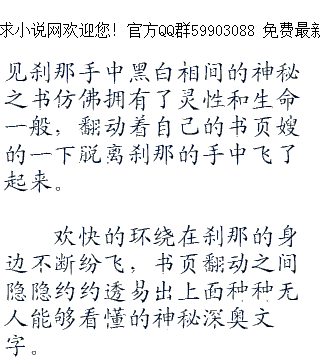 求小说网欢迎您！官方QQ群59903088 免费最新
见刹那手中黑白相间的神秘
之书仿佛拥有了灵性和生命
一般，翻动着自己的书页嫂
的一下脱离刹那的手中飞了
起来。
欢快的环绕在刹那的身
边不断纷飞，书页翻动之间
隐隐约约透易出上面种种无
人能够看懂的神秘深奥文
字。